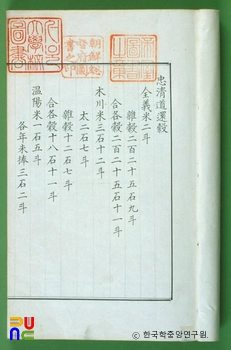 忠清道還穀
全義米二斗
雜穀二百二十五石九斗
合各穀二百二十五石十一斗
木川米三石十二斗
太二石七斗
雜穀十二石七斗
合各穀十八石十一斗
溫陽米一石五斗
各年未捧三石二斗
한국학중앙연구원